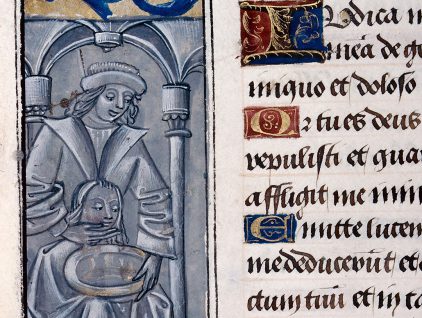 Iudica m
meā de ge
iniquo et doloso
Q r tu es deus
repulisti et qua
affligit me inim
E mitte lucem
me deduceru̅t et
ctum tuu̅ et in ta